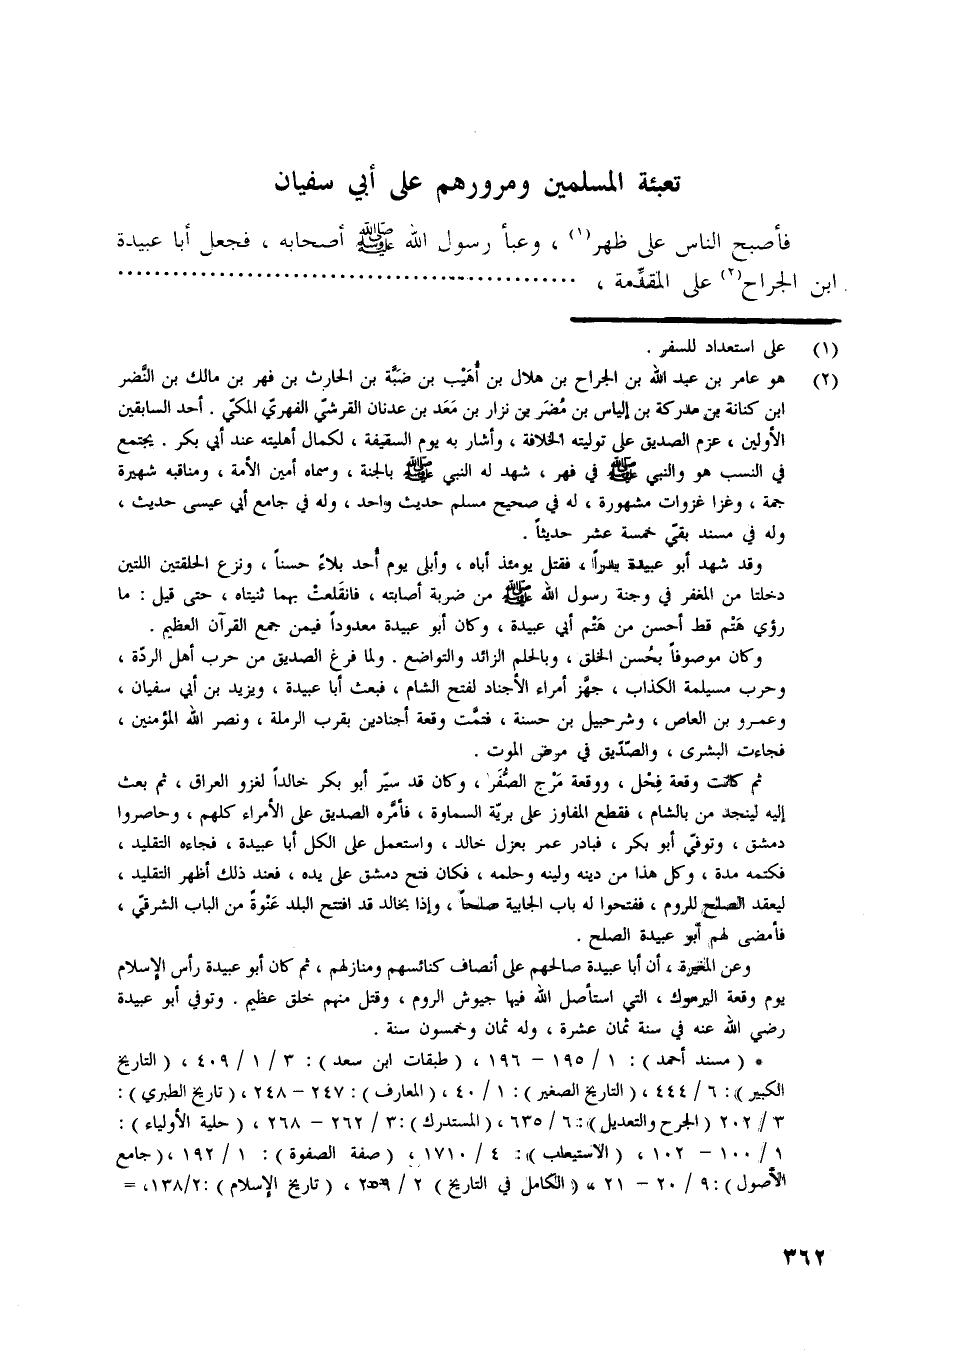 تعبئة المسلمين ومرورهم على أبي سفيان
فأصبح الناس على ظهر(١) ، وعبأ رسول الله ﷺ أصحابه ، فجعل أبا عبيدة
ابن الجراح(٢) على المقدِّمة ، ..........................................................
(١) على استعداد للسفر .
(٢) هو عامر بن عبد الله بن الجراح بن هلال بن أُهَيْب بن ضَبَّة بن الحارث بن فهر بن مالك بن النَّضر
ابن كنانة بن مدركة بن إلياس بن مُضَر بن نزار بن مَعَد بن عدنان القرشيّ الفهريّ المكيّ . أحد السابقين
الأولين ، عزم الصديق على توليته الخلافة ، وأشار به يوم السقيفة ، لكمال أهليته عند أبي بكر . يجتمع
في النسب هو والنبي ﷺ في فهر ، شهد له النبي ﷺ بالجنة ، وسماه أمين الأمة ، ومناقبه شهيرة
جمة ، وغزا غزوات مشهورة ، له في صحيح مسلم حديث واحد ، وله في جامع أبي عيسى حديث ،
وله في مسند بقيّ خمسة عشر حديثاً .
وقد شهد أبو عبيدة بدراً ، فقتل يومئذ أباه ، وأبلى يوم أُحد بلاءً حسناً ، ونزع الحلقتين اللتين
دخلتا من المغفر في وجنة رسول الله ﷺ من ضربة أصابته ، فانقَلعتْ بهما ثنيتاه ، حتى قيل : ما
رؤي هَتْم قط أحسن من هَتْم أبي عبيدة ، وكان أبو عبيدة معدوداً فيمن جمع القرآن العظيم .
وكان موصوفاً بحُسن الخلق ، وبالحلم الزائد والتواضع . ولما فرغ الصديق من حرب أهل الردّة ،
وحرب مسيلمة الكذاب ، جهَّز أمراء الأجناد لفتح الشام ، فبعث أبا عبيدة ، ويزيد بن أبي سفيان ،
وعمرو بن العاص ، وشرحبيل بن حسنة ، فتمَّت وقعة أجنادين بقرب الرملة ، ونصر الله المؤمنين ،
فجاءت البشرى ، والصّدّيق في مرض الموت .
ثم كانت وقعة فِحْل ، ووقعة مَرْج الصُّفَّر ، وكان قد سيّر أبو بكر خالداً لغزو العراق ، ثم بعث
إليه لينجد من بالشام ، فقطع المفاوز على بريّة السماوة ، فأمَّره الصديق على الأمراء كلهم ، وحاصروا
دمشق ، وتوفيّ أبو بكر ، فبادر عمر بعزل خالد ، واستعمل على الكل أبا عبيدة ، فجاءه التقليد ،
فكتمه مدة ، وكل هذا من دينه ولينه وحلمه ، فكان فتح دمشق على يده ، فعند ذلك أظهر التقليد ،
ليعقد الصلح للروم ، ففتحوا له باب الجابية صلحاً ، وإذا بخالد قد افتتح البلد عَنْوةً من الباب الشرقيّ ،
فأمضى لهم أبو عبيدة الصلح .
وعن المغيرة ، أن أبا عبيدة صالحهم على أنصاف كنائسهم ومنازلهم ، ثم كان أبو عبيدة رأس الإسلام
يوم وقعة اليرموك ، التي استأصل الله فيها جيوش الروم ، وقتل منهم خلق عظيم . وتوفي أبو عبيدة
رضي الله عنه في سنة ثمان عشرة ، وله ثمان وخمسون سنة .
* ( مسند أحمد ) : ١ / ١٩٥ – ١٩٦ ، ( طبقات ابن سعد ) : ٣ / ١ / ٤٠٩ ، ( التاريخ
الكبير ) : ٦ / ٤٤٤ ، ( التاريخ الصغير ) : ١ / ٤٠ ، ( المعارف ) : ٢٤٧ – ٢٤٨ ، ( تاريخ الطبري ) :
٣ / ٢٠٢ ( الجرح والتعديل ) : ٦ / ٦٣٥ ، ( المستدرك ) : ٣ / ٢٦٢ – ٢٦٨ ، ( حلية الأولياء ) :
١ / ١٠٠ – ١٠٢ ، ( الاستيعاب ) : ٤ / ١٧١٠ ، ( صفة الصفوة ) : ١ / ١٩٢ ، ( جامع
الأصول ) : ٩ / ٢٠ – ٢١ ، ( الكامل في التاريخ ) ٢ / ، ( تاريخ الإسلام ) : ١٣٨/٢ ، =
٣٦٢